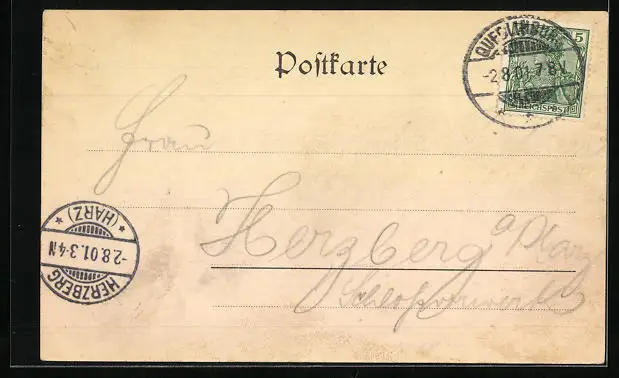 Postkarte
QUEDLINBURG
-2.8.01.7-8V.
5
REICHSPOST
Frau
Herzberg a Harz
Schlossvorwerk
HERZBERG
-2.8.01.3-4N
* (HARZ) *